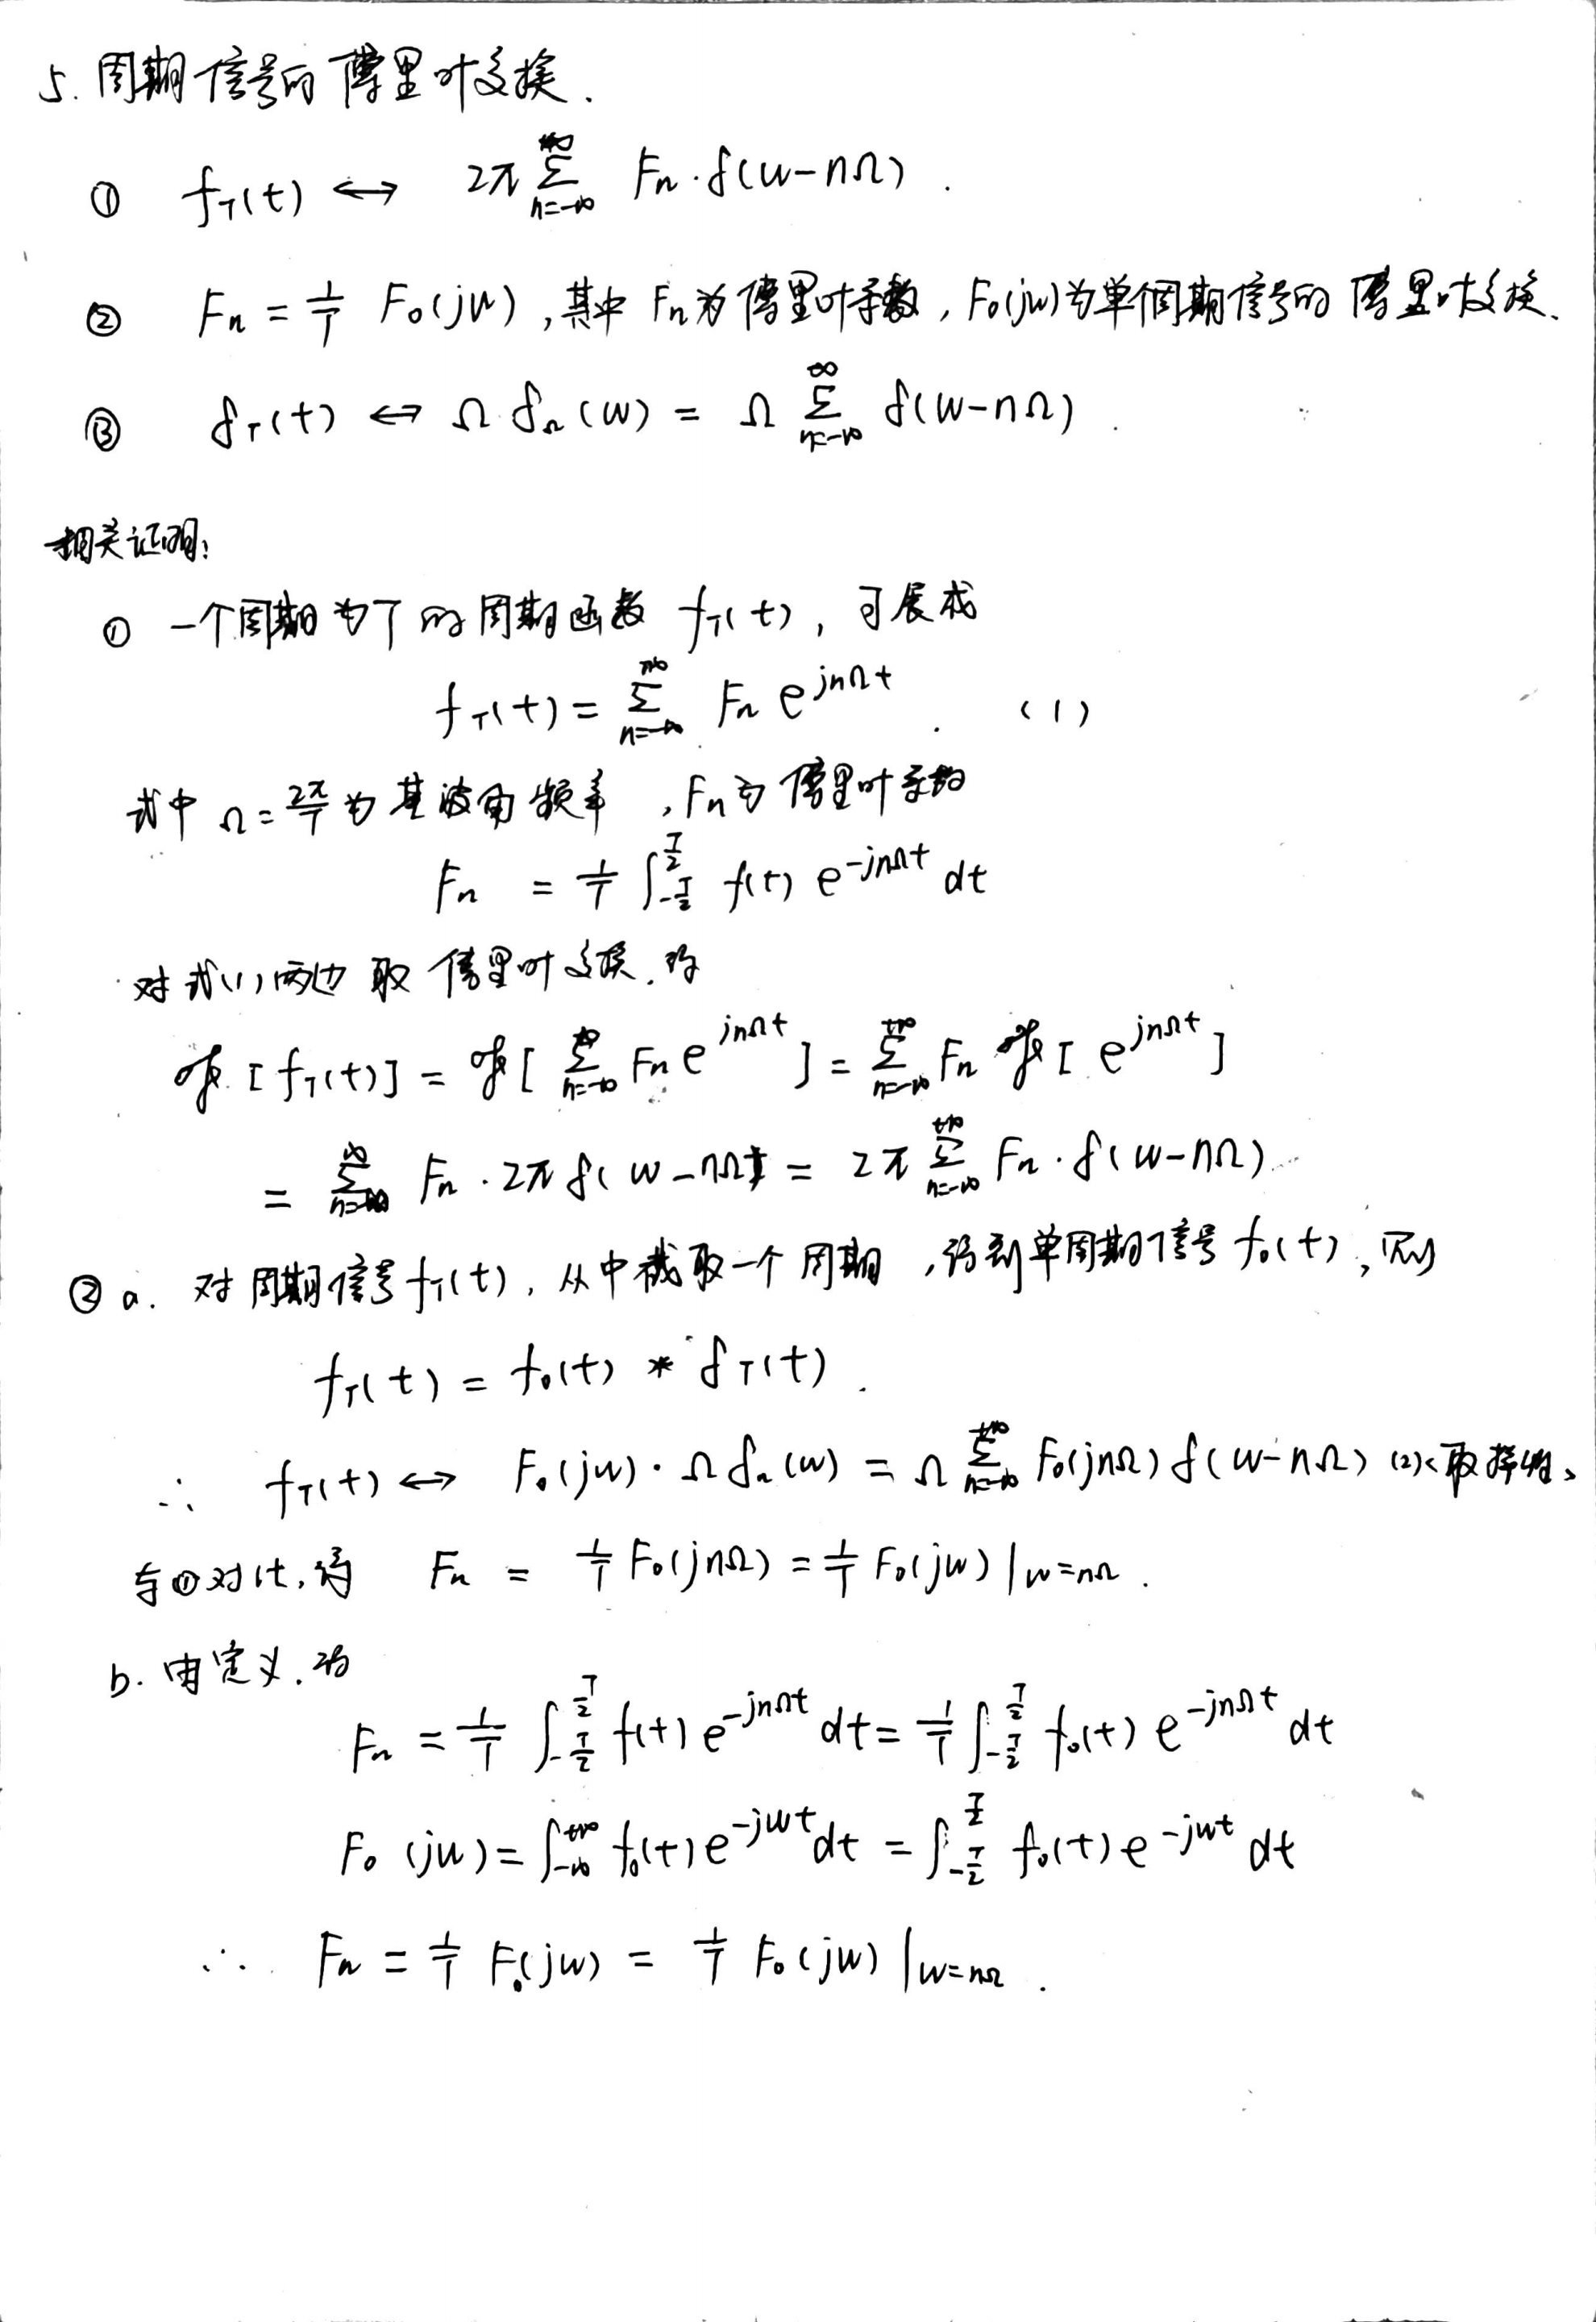 5. 周期信号的傅里叶变换.
① f_T(t) ↔ 2π ∑_{n=-∞}^{+∞} F_n·δ(ω-nΩ).
② F_n = 1/T F_0(jω), 其中 F_n为傅里叶系数, F_0(jω)为单个周期信号的傅里叶变换.
③ δ_T(t) ↔ Ω δ_Ω(ω) = Ω ∑_{n=-∞}^{∞} δ(ω-nΩ).
相关证明:
① 一个周期为T的周期函数 f_T(t), 可展成
f_T(t) = ∑_{n=-∞}^{+∞} F_n e^{jnΩt}. (1)
式中 Ω = 2π/T 为基波角频率, F_n为傅里叶系数
F_n = 1/T ∫_{-T/2}^{T/2} f(t) e^{-jnΩt} dt
对式(1)两边取傅里叶变换. 得
ℱ[f_T(t)] = ℱ[∑_{n=-∞}^{∞} F_n e^{jnΩt}] = ∑_{n=-∞}^{+∞} F_n ℱ[e^{jnΩt}]
= ∑_{n=-∞}^{∞} F_n·2πδ(ω-nΩ) = 2π ∑_{n=-∞}^{+∞} F_n·δ(ω-nΩ).
② a. 对周期信号f_T(t), 从中截取一个周期, 得到单周期信号 f_0(t), 则
f_T(t) = f_0(t) * δ_T(t).
∴ f_T(t) ↔ F_0(jω)·Ω δ_Ω(ω) = Ω ∑_{n=-∞}^{+∞} F_0(jnΩ) δ(ω-nΩ) (2)<取样性>
与①对比, 得 F_n = 1/T F_0(jnΩ) = 1/T F_0(jω)|_{ω=nΩ}.
b. 由定义. 得
F_n = 1/T ∫_{-T/2}^{T/2} f(t) e^{-jnΩt} dt = 1/T ∫_{-T/2}^{T/2} f_0(t) e^{-jnΩt} dt
F_0(jω) = ∫_{-∞}^{+∞} f_0(t) e^{-jωt} dt = ∫_{-T/2}^{T/2} f_0(t) e^{-jωt} dt
∴ F_n = 1/T F_0(jω) = 1/T F_0(jω)|_{ω=nΩ}.